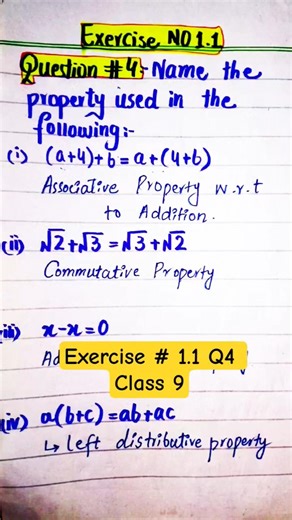 Exercise NO 1.1
Question #4:- Name the
property used in the
following:-
(i) (a+4)+b = a+(4+b)
Associative Property w.r.t
to Addition.
(ii) √2+√3 = √3+√2
Commutative Property
x-x=0
Exercise # 1.1 Q4
Class 9
(iv) a(b+c) = ab+ac
↳ left distributive property